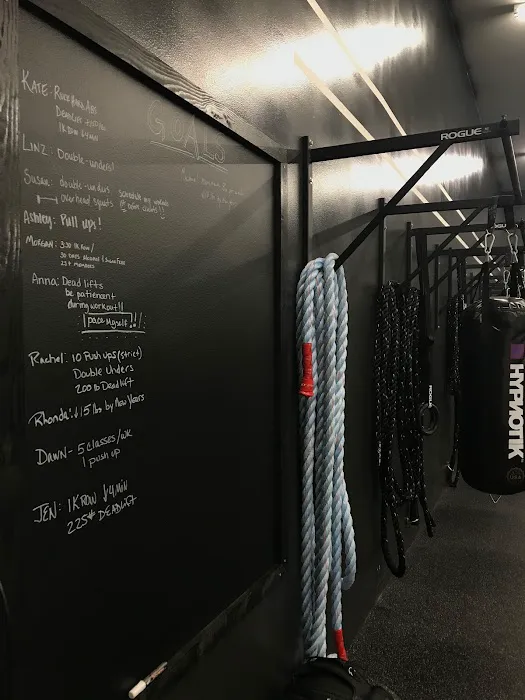 GOALS
KATE: Rock Hard Abs
Deadlift
1K Row
LINZ: Double-unders!
Susan: double-unders
overhead squats
Ashley: Pull ups!
MORGAN:
Anna: Dead lifts
be patienent
during workout!!
I pace Myself!!!
Rachel: 10 Push ups (strict)
Double Unders
200 lb Deadlift
Rhonda: ↓15 lbs by New Years
DAWN - 5 classes/wk
1 push up
JEN: 1K ROW ↓4 MIN
225# DEADLIFT
ROGUE
ROGUE
HYPNOTIK